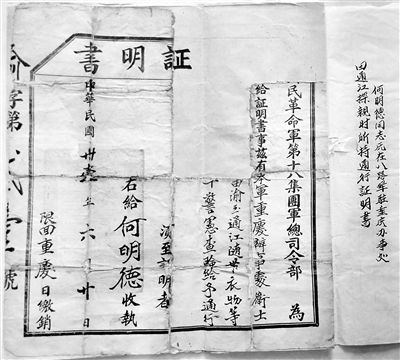 何明德同志元在八路軍駐重庆办事处
回通江探親时所持通行証明書
証明書
民革命軍第十八集團軍總司令部 為
給証明書事茲有本軍重慶辦事處衛士
由渝至通江隨帶衣物等
警憲查驗給予通行
須至証明者
右給何明德收執
中華民國卅壹年六月卅日
限回重慶日繳銷
渝字第 號